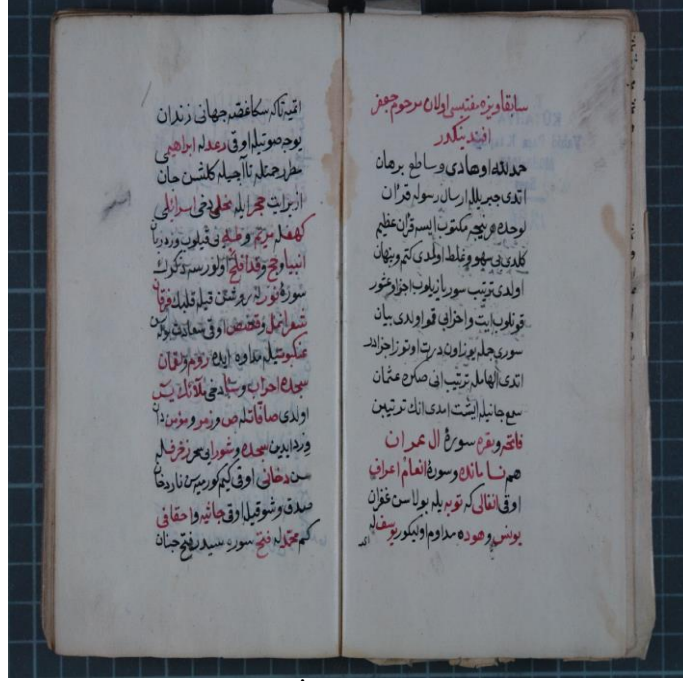 سابقا ويزه مفتيسى اولان مرحوم جعفر
افندينكدر
حمد لله اوهادى وساطع برهان
اتدى جبريلله ارسال رسوله قرآن
لوحده هر نيجه مكتوب ايسه قرآن عظيم
كلدى بى سهو وغلط اولدى كتم وپنهان
اولدى ترتيب سور يازيلوب اجزا وعشور
قونلوب ايت واحزابى قمو اولدى بيان
سورى جمله يوز اون درت اوتوز اجزادر
اتدى الهامله ترتيب انى صكره عثمان
سمع جانيله ايشت امدى انك ترتيبن
فاتحه وبقره سورۀ ال عمران
هم نسا مائده وسورۀ انعام اعراف
اوقى انفالى كه توبه يله بولاسن غفران
يونس وهوده مداوم اوليكور يوسفله
اتميه تاكه سكا غصۀ جهانى زندان
يوجه صوتيله اوقى رعدله ابراهيمى
مطر رحمتله تا آچيله كلشن جان
از برايت حجر ايله نحلى دخى اسرائلى
كهفله مريم وطهيى قيلوب ورد زبان
انبيا وحج وقد افلح اولورسه ذكرك
سورۀ نورله روشن قيله قلبك فرقان
شعرا نمل وقصص اوقى سعادت بوله سن
عنكبوتيله مداوه ايده روم ولقمان
سجده احزاب وسبا دخى ملائك يس
اولدى صافاتله ص وزمر ومؤمن دان
ورد ايدين سجده وشورايى زخرفله
سن دخانى اوقى كيم كورميسن نار دخان
صدق وشوقيله اوقى جاثيه واحقافى
كم محمدله فتح سوره سيدر فتح جنان